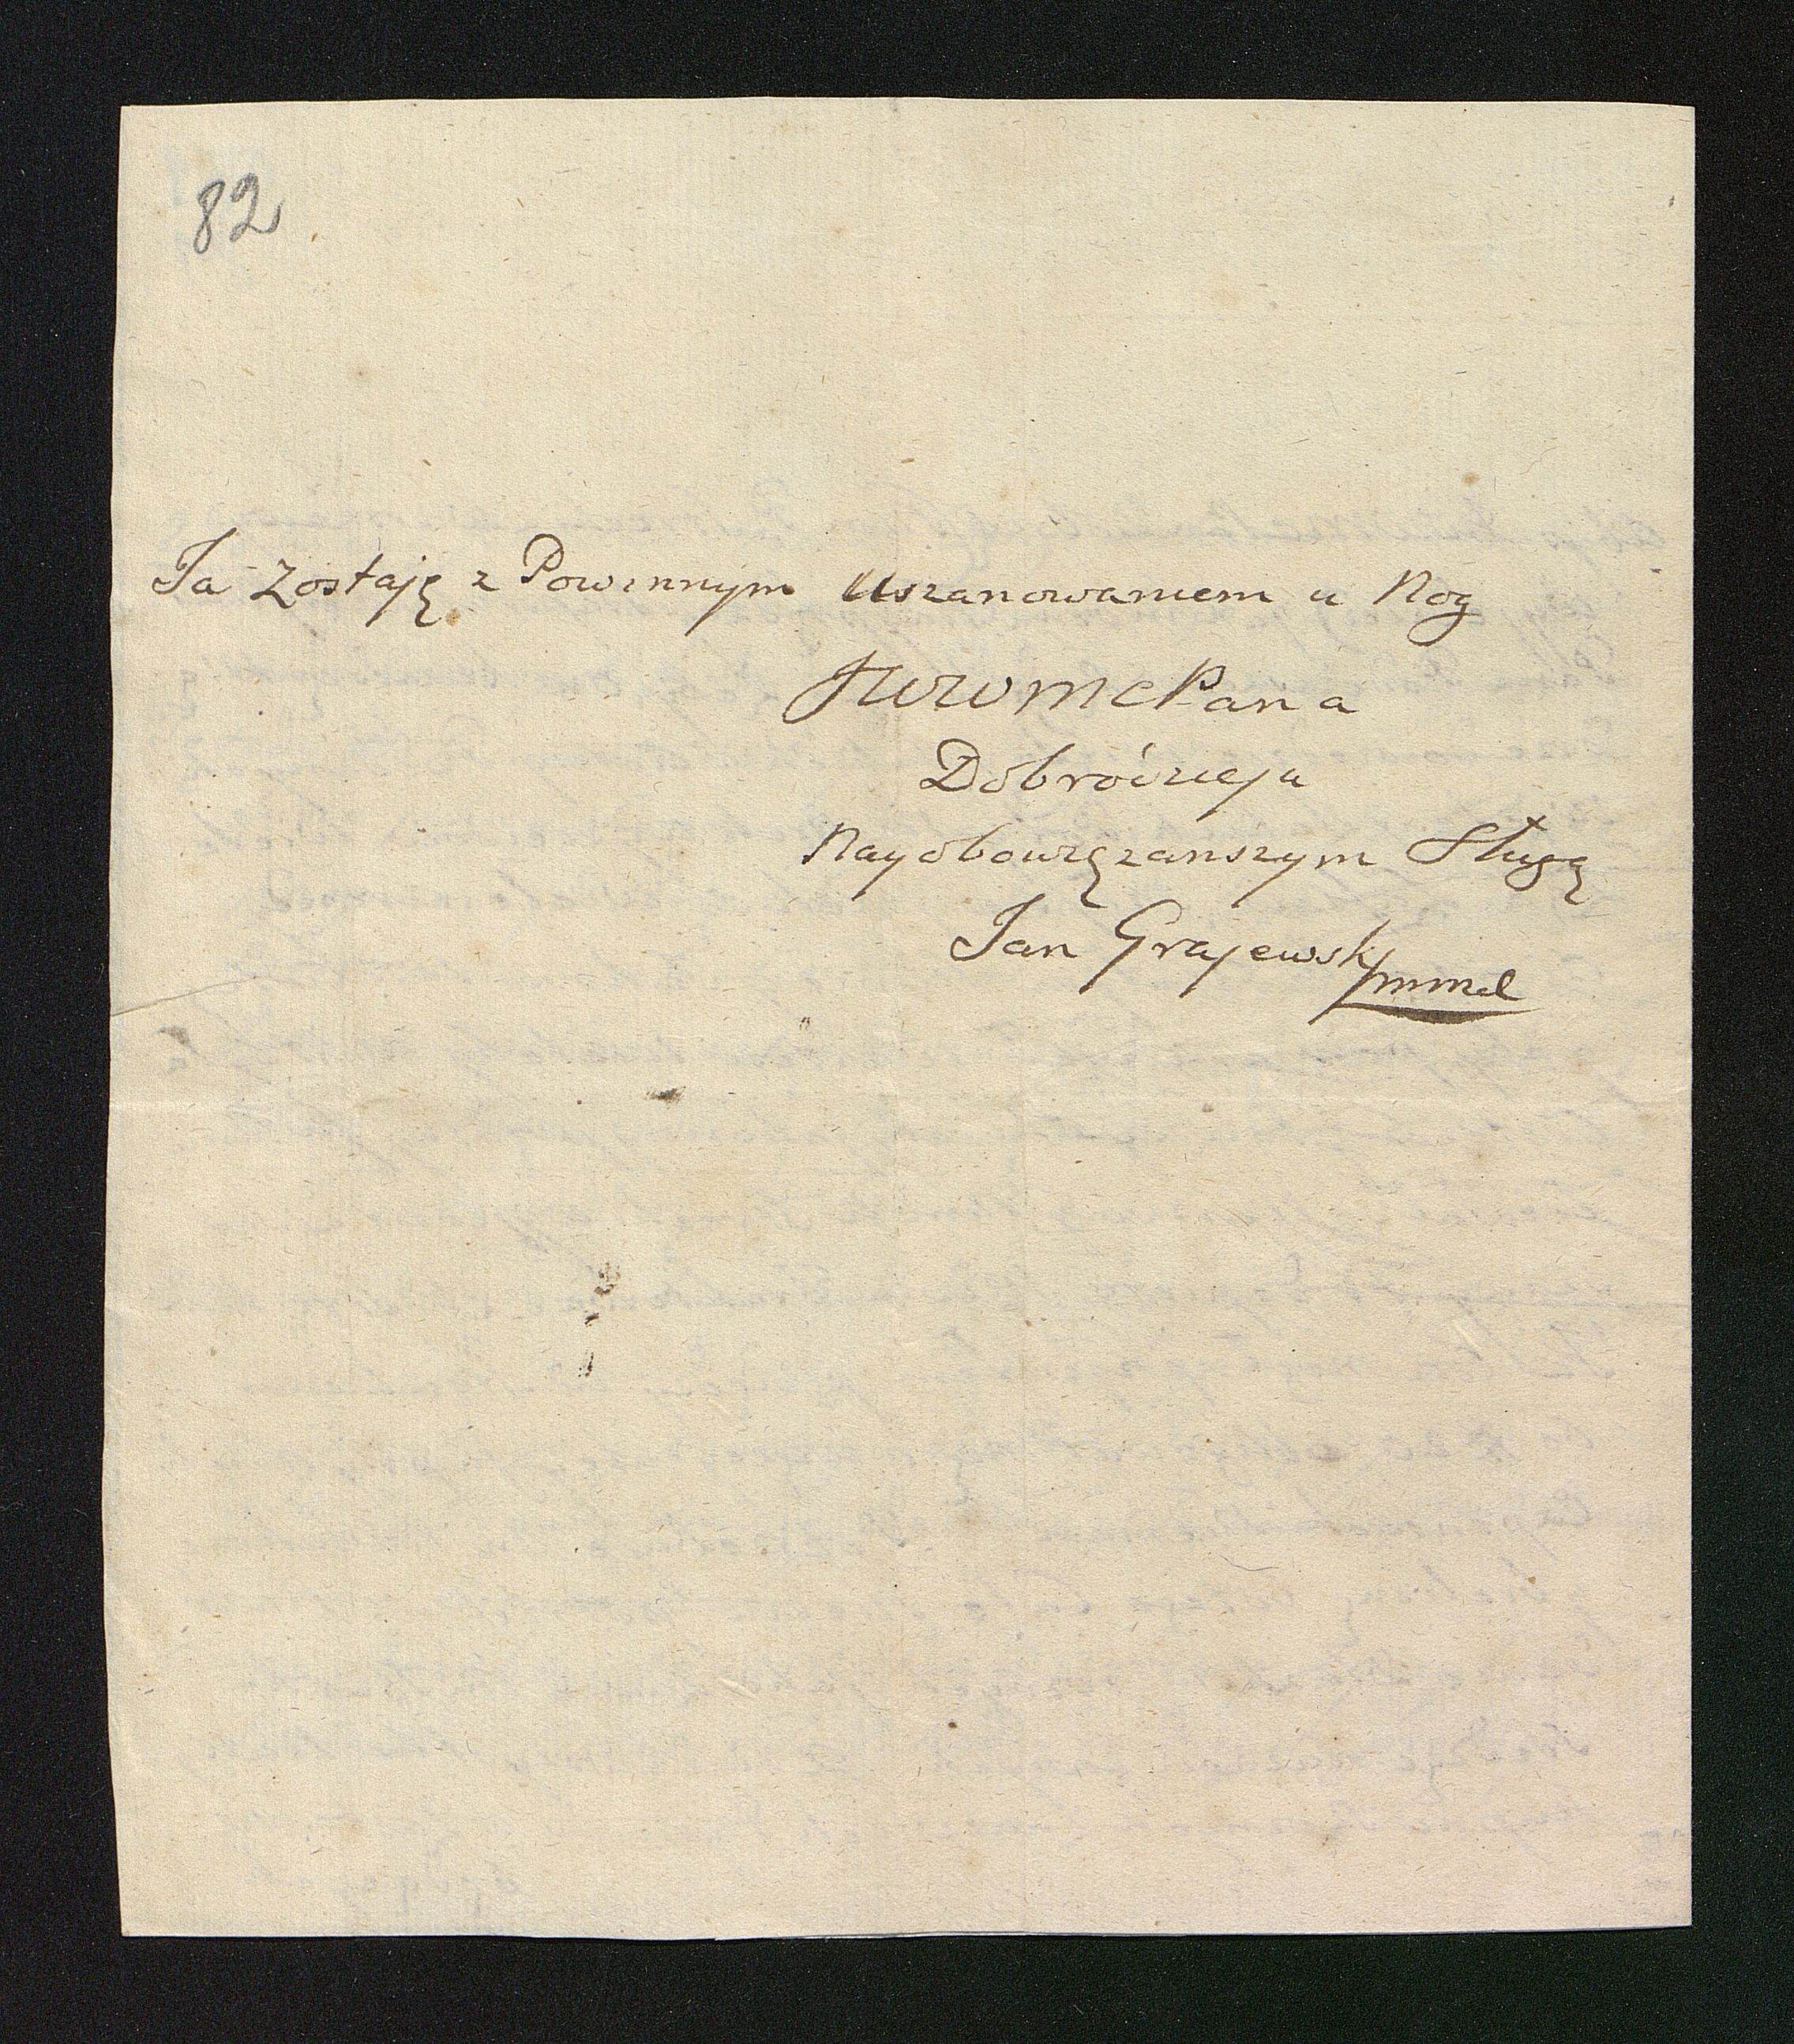 82
Ja Zostaję z Powinnym Uszanowaniem u Nog
JWWMCPana
Dobrodzieja
Nayobowęzanszym Sługą
Jan Grajewski mmel